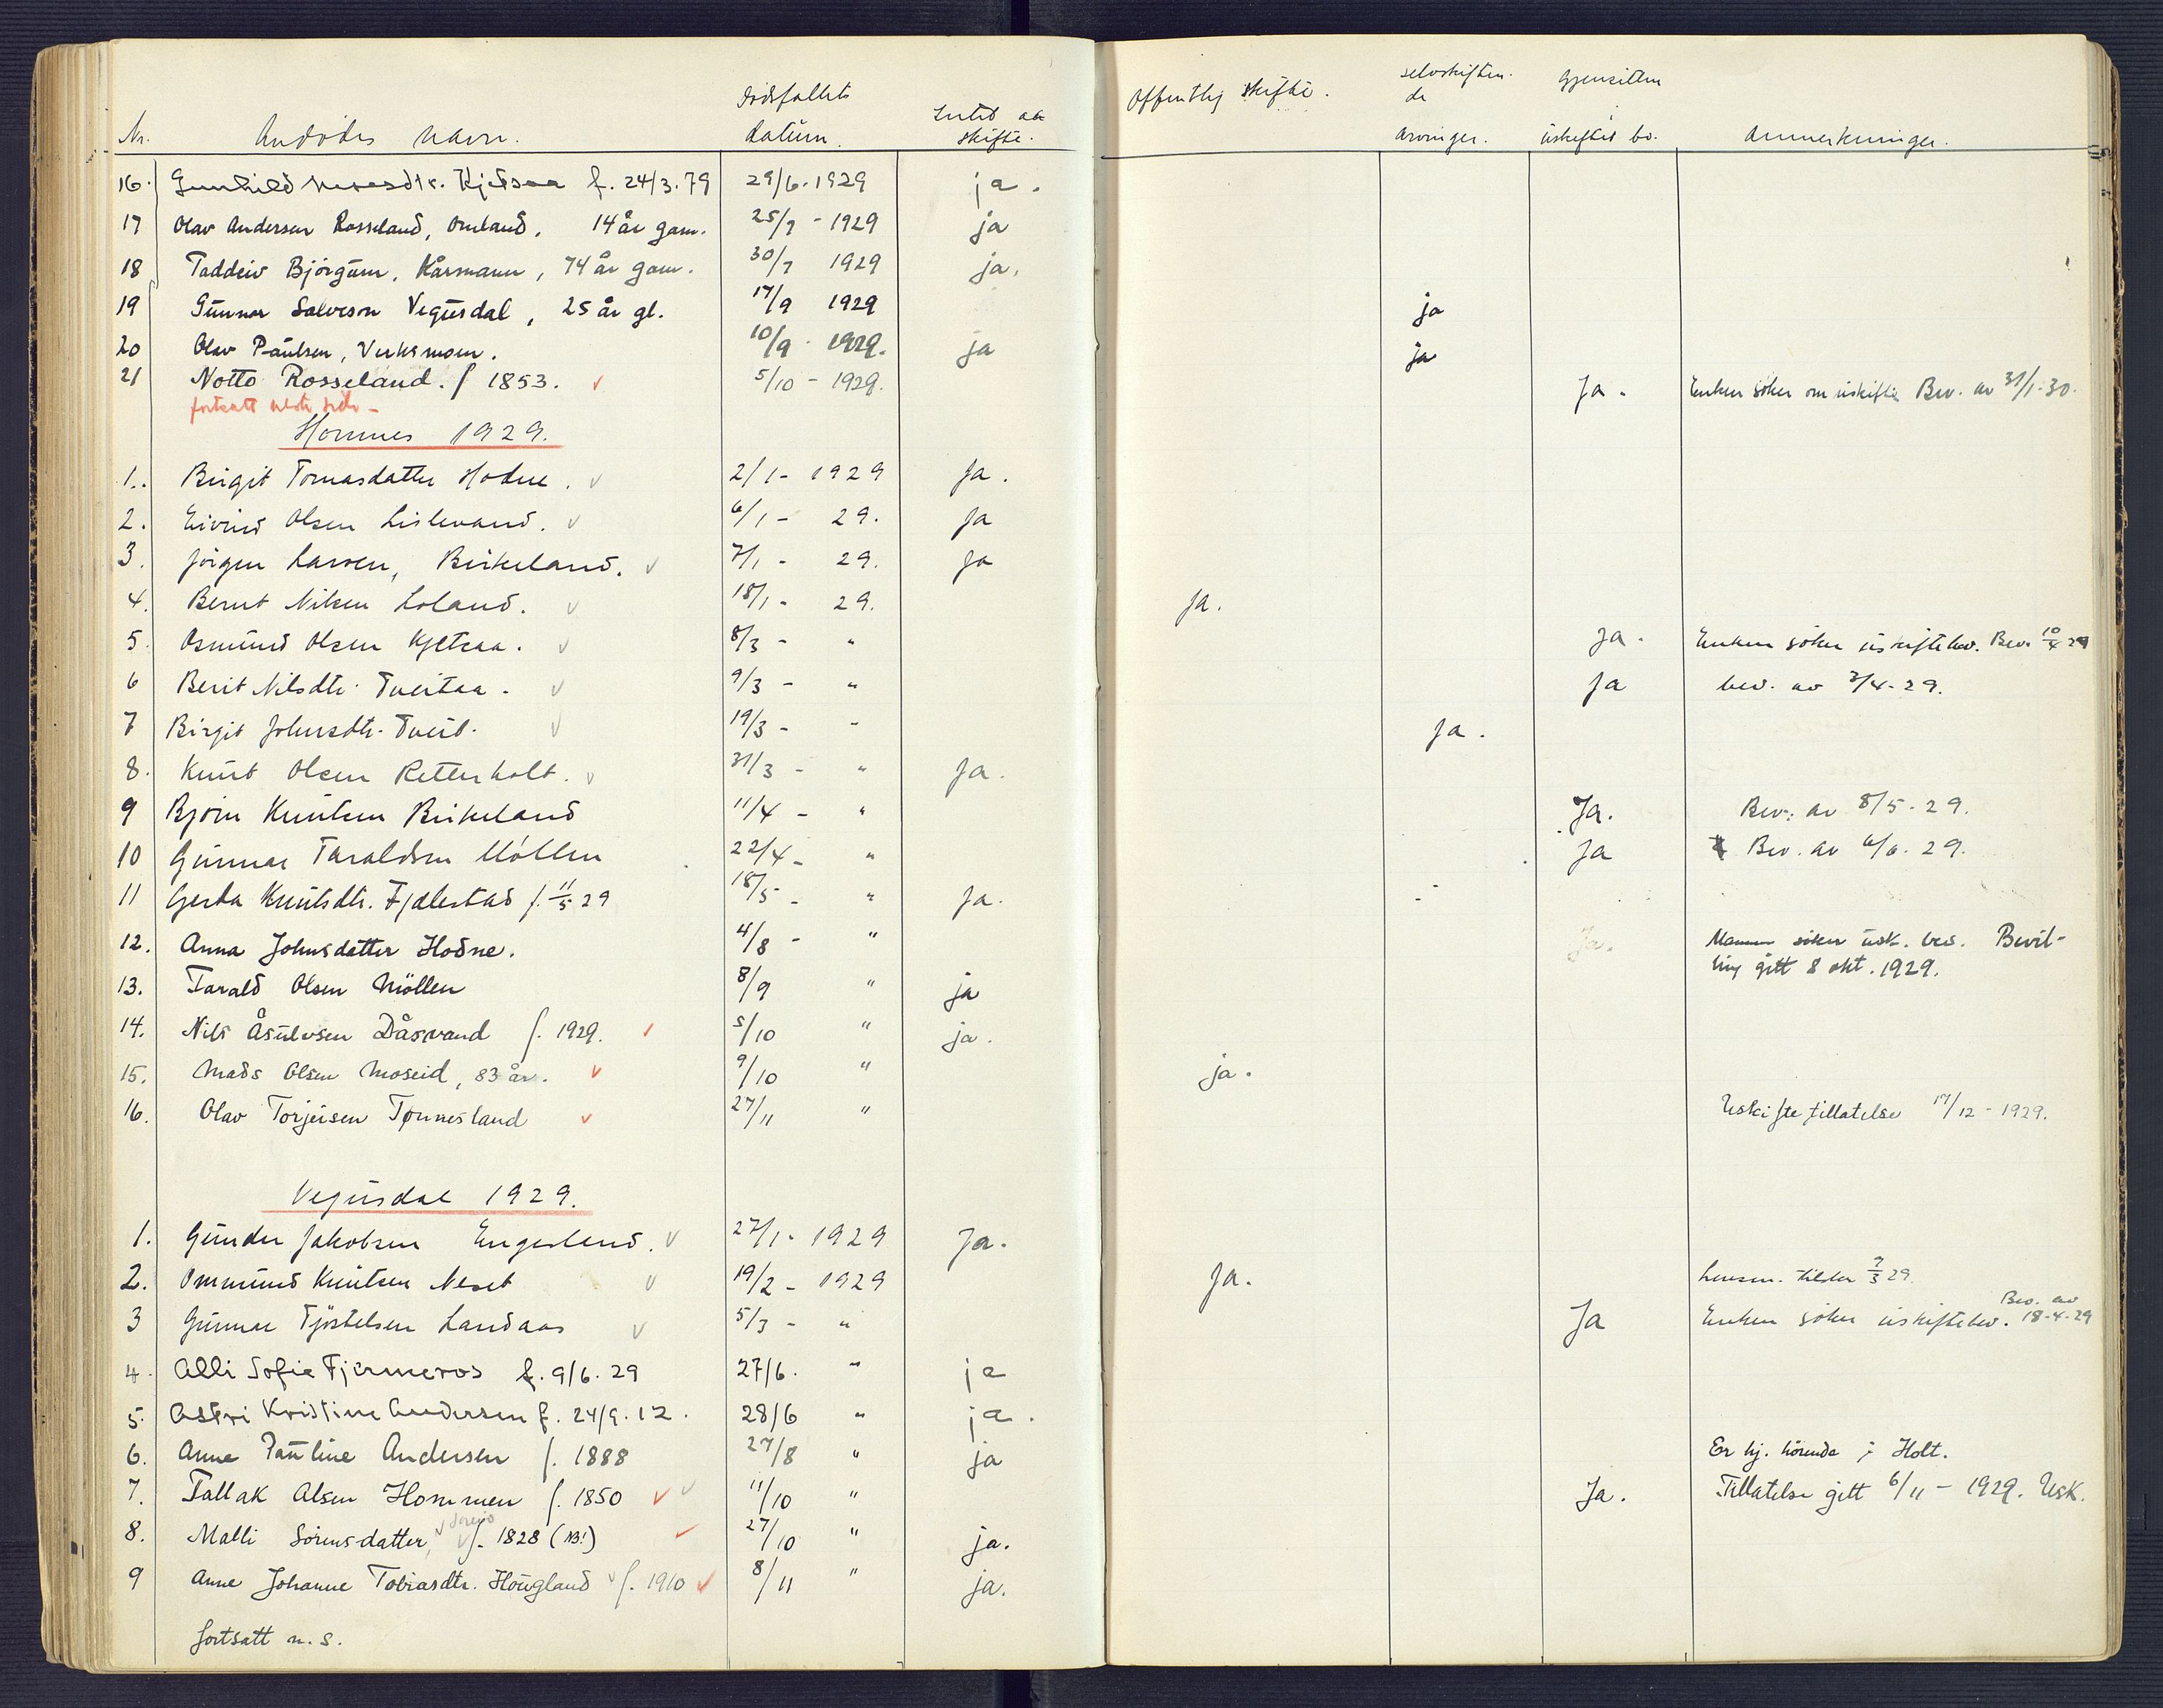 Nr. Avdødes navn. Dødsfallets datum. Intet at skifte. Offentlig skifte. selvskiftende arvinger. Gjensitten i uskiftet bo. Anmerkninger.
16. Gunhild Kjetsaa f. 24/3.79 29/6.1929 ja.
17 Olav Andersen Rosseland, Omland, 14 år gam. 25/7 - 1929 ja
18 Taddeiv Bjørgum, Kårmann, 74 år gam. 30/7 1929 ja.
19 Gunnar Salveson Vegusdal, 25 år gl. 17/9 1929 ja
20 Olav Paulsen, Verksmoen. 10/9 1929. ja ja
21 Notto Rosseland. f 1853. 5/10 - 1929. Ja. Enken søker om uskifte Bev. av 31/1-30.
fortsatt neste side -
Hornnes 1929.
1. Birgit Tomasdatter Hodne. 2/1- 1929 Ja.
2. Eivind Olsen Lislevand. 6/1- 29. Ja
3. Jörgen Larsen, Birkeland. 7/1 - 29. Ja
4. Bernt Nilsen Loland. 18/1- 29. Ja.
5. Osmund Olsen Kjetsaa. 8/3 - " Ja. Enken söker uskiftebev. Bev. 10/4 29
6 Berit Nilsdtr. Tveitaa. 9/3 - " Ja bev. av 3/4-29.
7 Birgit Johnsdtr. Tveit. 19/3 - " Ja.
8. Knut Olsen Retterholt. 31/3 - " Ja.
9 Bjørn Knutsen Birkeland 11/4 - " Ja. Bev. av 8/5-29.
10 Gunnar Taraldsen Möllen 22/4 - " Ja Bev. av 6/6. 29.
11 Gerda Knutsdtr. Fjalestad f. 11/5 29 18/5 - " Ja.
12. Anna Johnsdatter Hodne. 4/8 - " Ja. Mannen søker usk. bev. Bevil-
ling gitt 8 okt. 1929.
13. Tarald Olsen Möllen 8/9 " ja
14. Nils Åsulvsen Dåsvand f. 1929. 5/10 " ja.
15. Mads Olsen Moseid, 83 år. 9/10 " ja.
16. Olav Torjusen Tønnesland 27/11 " Uskifte tillatelse 17/12 - 1929.
Vegusdal 1929.
1. Gunder Jakobsen Engesland. 27/1- 1929 Ja.
2. Ommund Knutsen Neset 19/2 - 1929 Ja. 7/3 29.
3 Gunnar Tjöstelsen Landaas 5/3 - " Ja Enken søker uskiftebev. Bev. av 18-4-29
4. Alli Sofie Fjermeros f. 9/6. 29 27/6. " ja
5. Astri Kristine Andersen f. 24/9.12. 28/6 " ja.
6. Anne Pauline Andersen f. 1888 27/8 " ja Er hj. hörende i Holt.
7. Tallak Olsen Hommen f. 1850 11/10 " Ja. Tillatelse gitt 6/11 - 1929. Usk.
8. Malli Sörensdatter, f. 1828 (NB!) 27/10 " ja.
9 Anne Johanne Tobiasdtr. Hougland f. 1910 8/11 " ja.
fortsatt n. s.